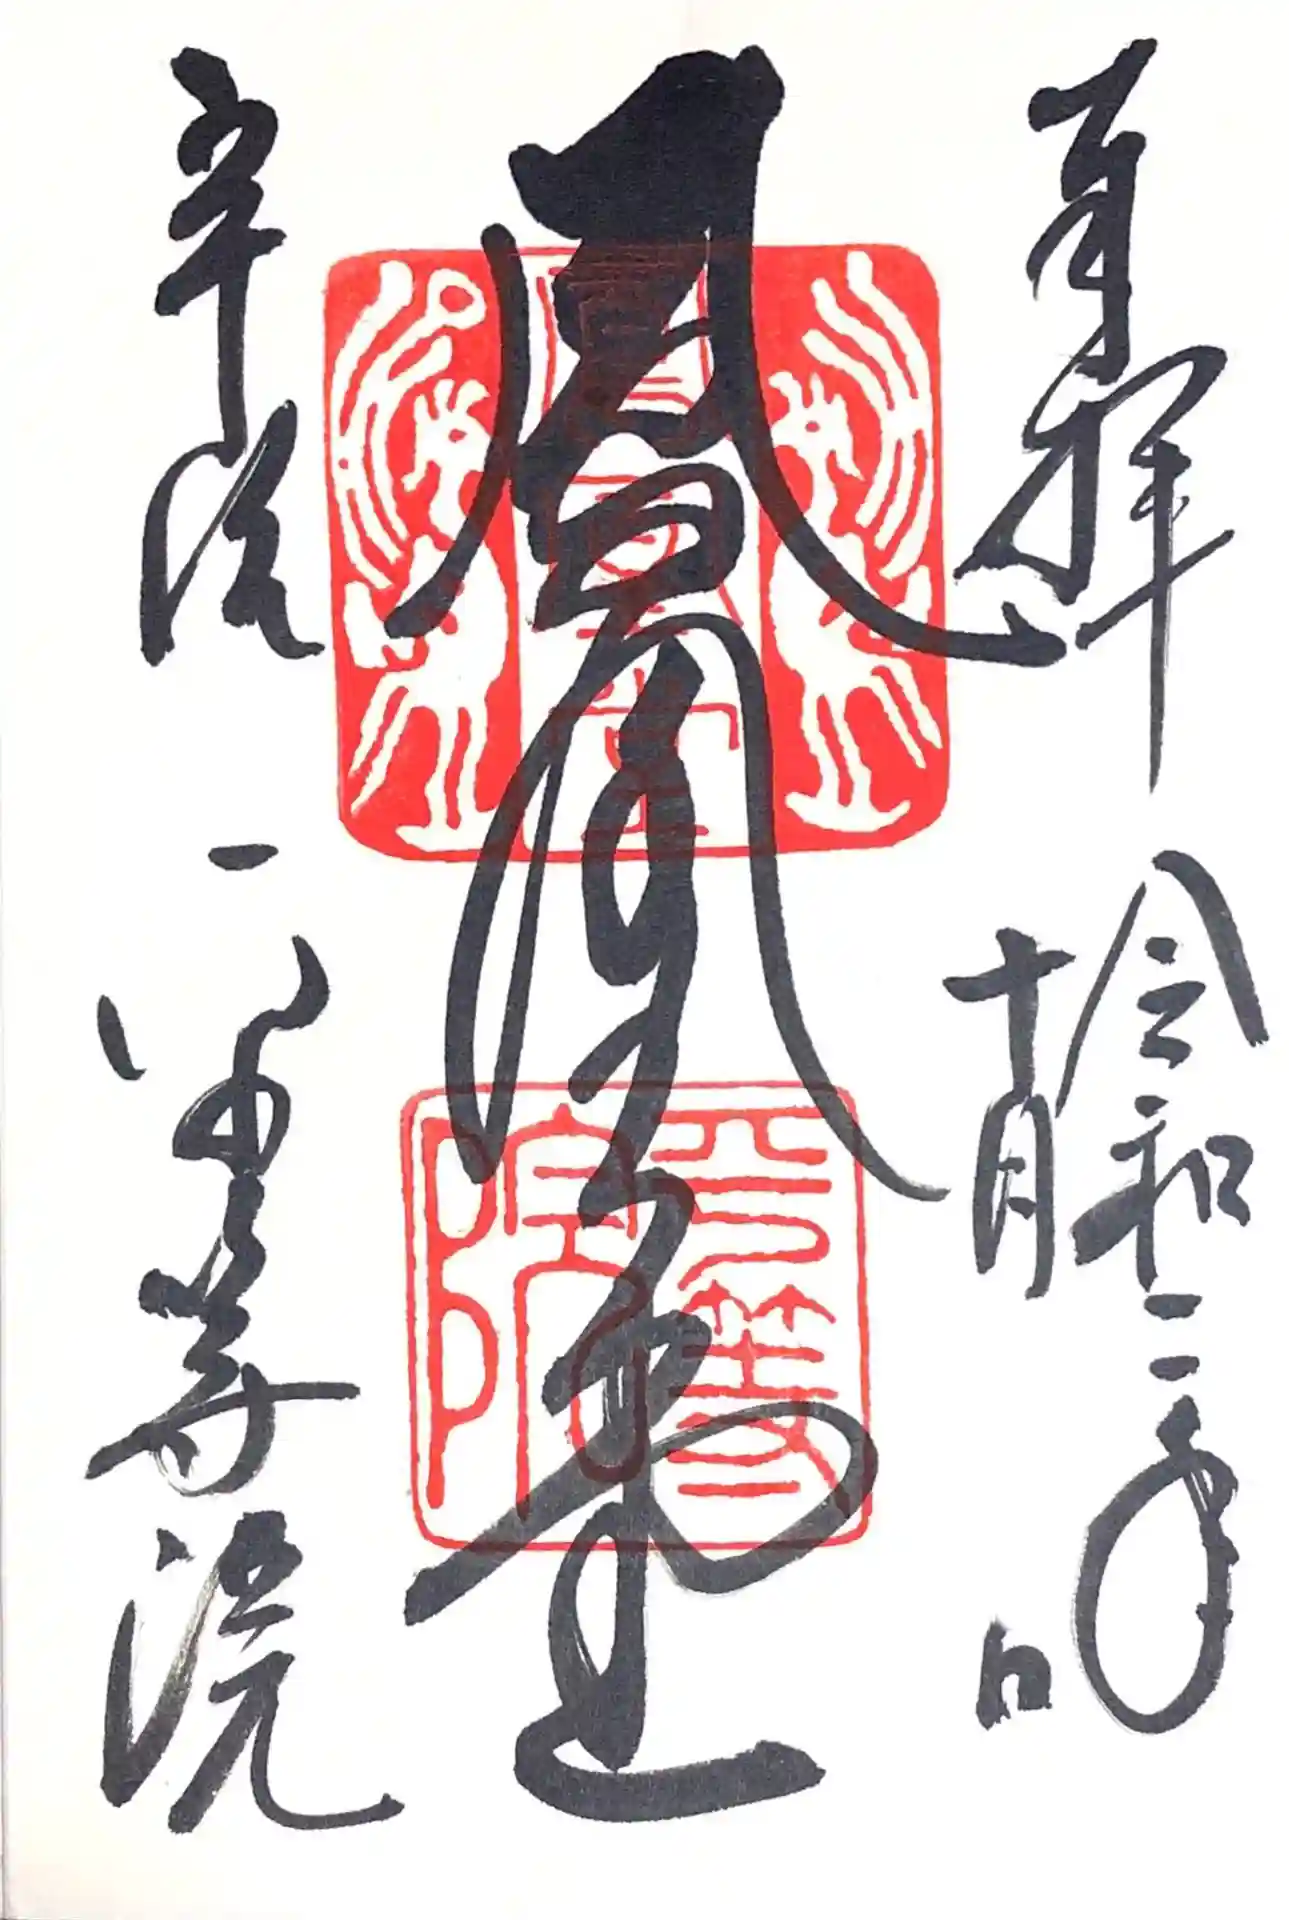 奉拝
令和二年
十月 日
鳳凰堂
宇治 平等院
平等院